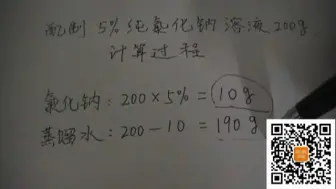 配制 5% 纯氯化钠溶液 200g
计算过程
氯化钠：200×5%=10g
蒸馏水：200-10=190g